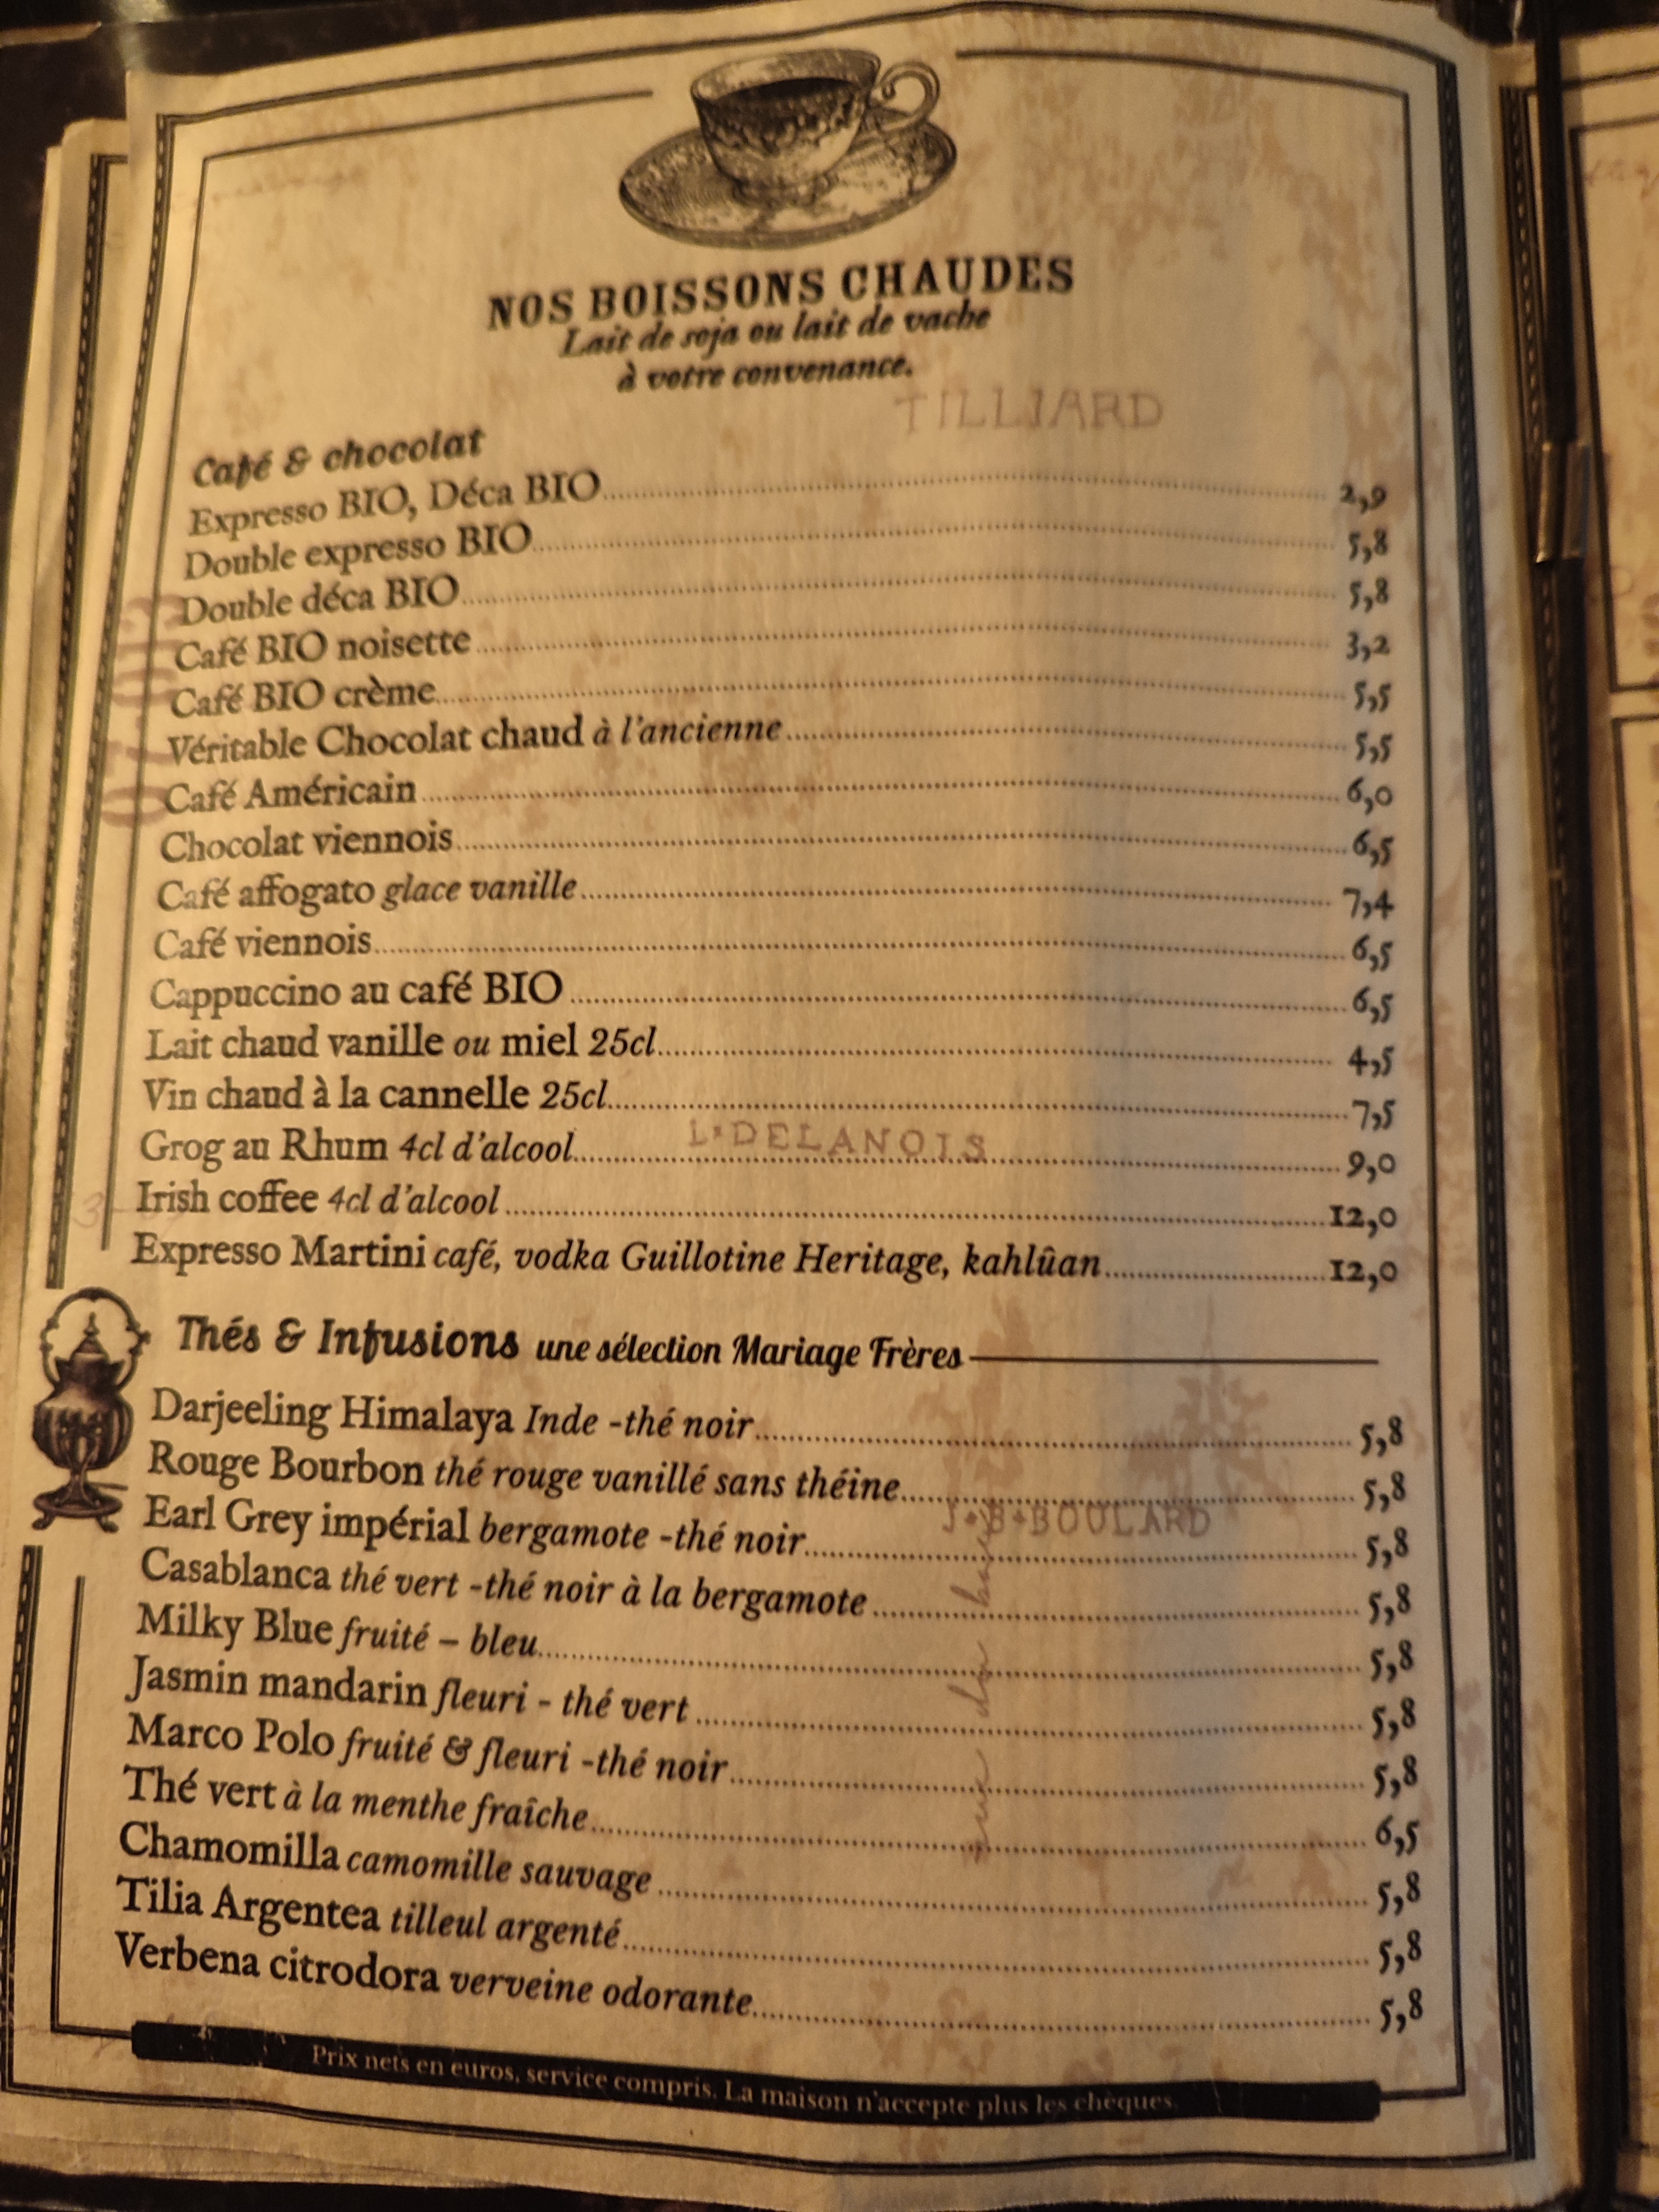 NOS BOISSONS CHAUDES
Lait de soja ou lait de vache
à votre convenance.
TILLIARD
Café & chocolat
Expresso BIO, Déca BIO 2,9
Double expresso BIO 5,8
Double déca BIO 5,8
Café BIO noisette 3,2
Café BIO crème 5,5
Véritable Chocolat chaud à l'ancienne 5,5
Café Américain 6,0
Chocolat viennois 6,5
Café affogato glace vanille 7,4
Café viennois 6,5
Cappuccino au café BIO 6,5
Lait chaud vanille ou miel 25cl 4,5
Vin chaud à la cannelle 25cl 7,5
L•DELANOIS
Grog au Rhum 4cl d'alcool 9,0
Irish coffee 4cl d'alcool 12,0
Expresso Martini café, vodka Guillotine Heritage, kahlûan 12,0
Thés & Infusions une sélection Mariage Frères
Darjeeling Himalaya Inde -thé noir 5,8
Rouge Bourbon thé rouge vanillé sans théine 5,8
J•B•BOULARD
Earl Grey impérial bergamote -thé noir 5,8
Casablanca thé vert -thé noir à la bergamote 5,8
Milky Blue fruité – bleu 5,8
Jasmin mandarin fleuri - thé vert 5,8
Marco Polo fruité & fleuri -thé noir 5,8
Thé vert à la menthe fraîche 6,5
Chamomilla camomille sauvage 5,8
Tilia Argentea tilleul argenté 5,8
Verbena citrodora verveine odorante 5,8
Prix nets en euros, service compris. La maison n'accepte plus les chèques.